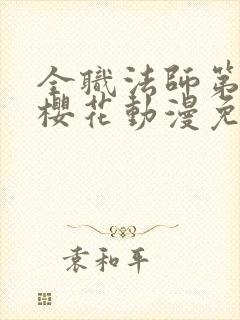 全職法師第
櫻花動漫免
袁和平